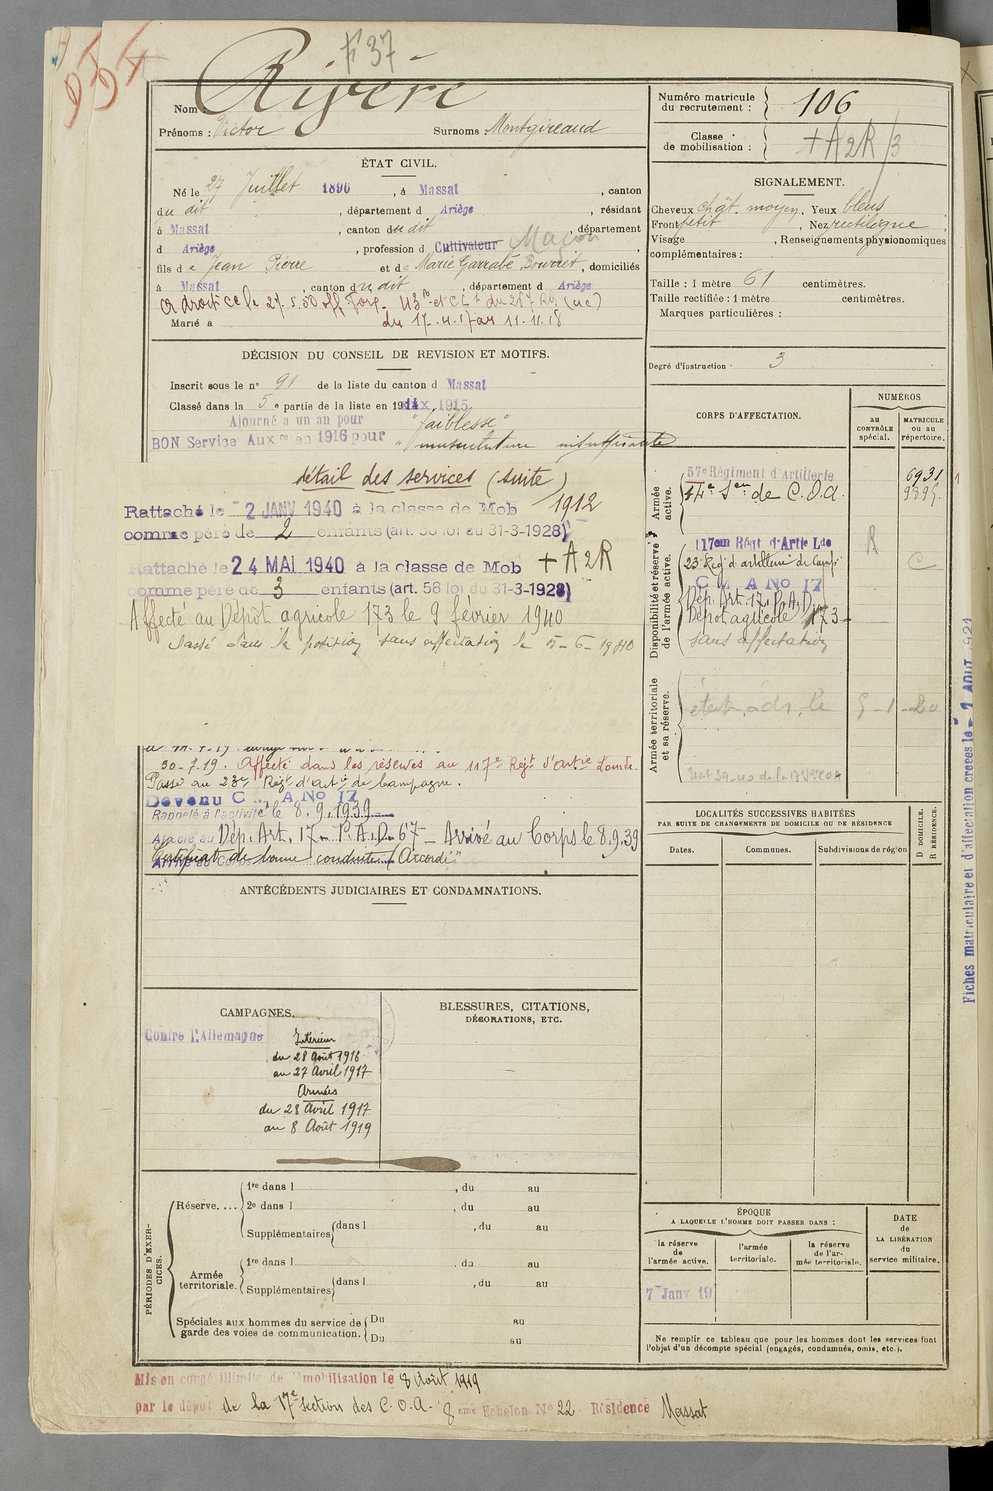 F 37
Nom : Rivère
Prénoms : Victor Surnoms : Montgireaud
Numéro matricule du recrutement : 106
Classe de mobilisation : + A 2R/3
ÉTAT CIVIL.
Né le 27 Juillet 1896, à Massat, canton
du dit, département d Ariège, résidant
à Massat, canton du dit, département
d Ariège, profession d Cultivateur Maçon
fils de Jean Pierre et de Marie Garrabé Bourret, domiciliés
à Massat, canton du dit, département d Ariège
a droit ce le 27.5.50
du 17.4.17 au 11.11.18
Marié à
SIGNALEMENT.
Cheveux chât. moyen, Yeux bleus
Front petit, Nez rectiligne
Visage , Renseignements physionomiques
complémentaires :
Taille : 1 mètre 61 centimètres.
Taille rectifiée : 1 mètre centimètres.
Marques particulières :
Degré d'instruction 3
DÉCISION DU CONSEIL DE REVISION ET MOTIFS.
Inscrit sous le n° 91 de la liste du canton d Massat
Classé dans la 5e partie de la liste en 1915.
Ajourné à un an pour "faiblesse"
BON Service Auxre en 1916 pour "musculature insuffisante
détail des services (suite)
Rattaché le 2 JANV 1940 à la classe de Mob 1912
comme père de 2 enfants (art. 58 loi du 31-3-1928)
Rattaché le 24 MAI 1940 à la classe de Mob + A 2R
comme père de 3 enfants (art. 58 loi du 31-3-1928)
Affecté au Dépôt agricole 173 le 9 février 1940
Passé dans la position sans affectation le 15-6-1940
30-7-19. Affecté dans les réserves au 117e Régt d'Artie Lourde.
Passé au 23e Régt d'Artie de Campagne.
Devenu C. M. A No 17
Rappelé à l'activité le 8.9.1939
Affecté au Dép. Art. 17 P.A.D. 67 Arrivé au Corps le 8.9.39
Certificat de bonne conduite "Accordé"
CORPS D'AFFECTATION.
NUMÉROS
au CONTRÔLE spécial.
MATRICULE ou au répertoire.
Armée active.
57e Régiment d'Artillerie 6931
17e Son de C.O.A. 9895
Disponibilité et réserve de l'armée active.
117eme Régt d'Artie Lde R
23 Reg d'artillerie de Camp C
C M A No 17
Dép. Art. 17. P.A.D.
Dépôt agricole 173
sans affectation
Armée territoriale et sa réserve.
LOCALITÉS SUCCESSIVES HABITÉES
PAR SUITE DE CHANGEMENTS DE DOMICILE OU DE RÉSIDENCE
Dates. Communes. Subdivisions de région
D DOMICILE. R RÉSIDENCE.
Fiches matriculaire et d'affectation créées le 1 AOUT 1921
ANTÉCÉDENTS JUDICIAIRES ET CONDAMNATIONS.
CAMPAGNES.
Contre l'Allemagne
Intérieur
du 28 Août 1916
au 27 Avril 1917
Armées
du 28 Avril 1917
au 8 Août 1919
BLESSURES, CITATIONS,
DÉCORATIONS, ETC.
PÉRIODES D'EXERCICES.
Réserve....
1re dans l , du au
2e dans l , du au
Supplémentaires dans l , du au
Armée territoriale.
1re dans l , du au
Supplémentaires dans l , du au
Spéciales aux hommes du service de garde des voies de communication.
Du au
Du au
ÉPOQUE
A LAQUELLE L'HOMME DOIT PASSER DANS :
la réserve de l'armée active.
l'armée territoriale.
la réserve de l'armée territoriale.
DATE DE LA LIBÉRATION du service militaire.
7 Janv 19
Ne remplir ce tableau que pour les hommes dont les services font
l'objet d'un décompte spécial (engagés, condamnés, omis, etc.).
Mis en congé illimité de démobilisation le 8 Août 1919
par le dépôt de la 17e section des C.O.A. 8eme Echelon No 22 Résidence Massat